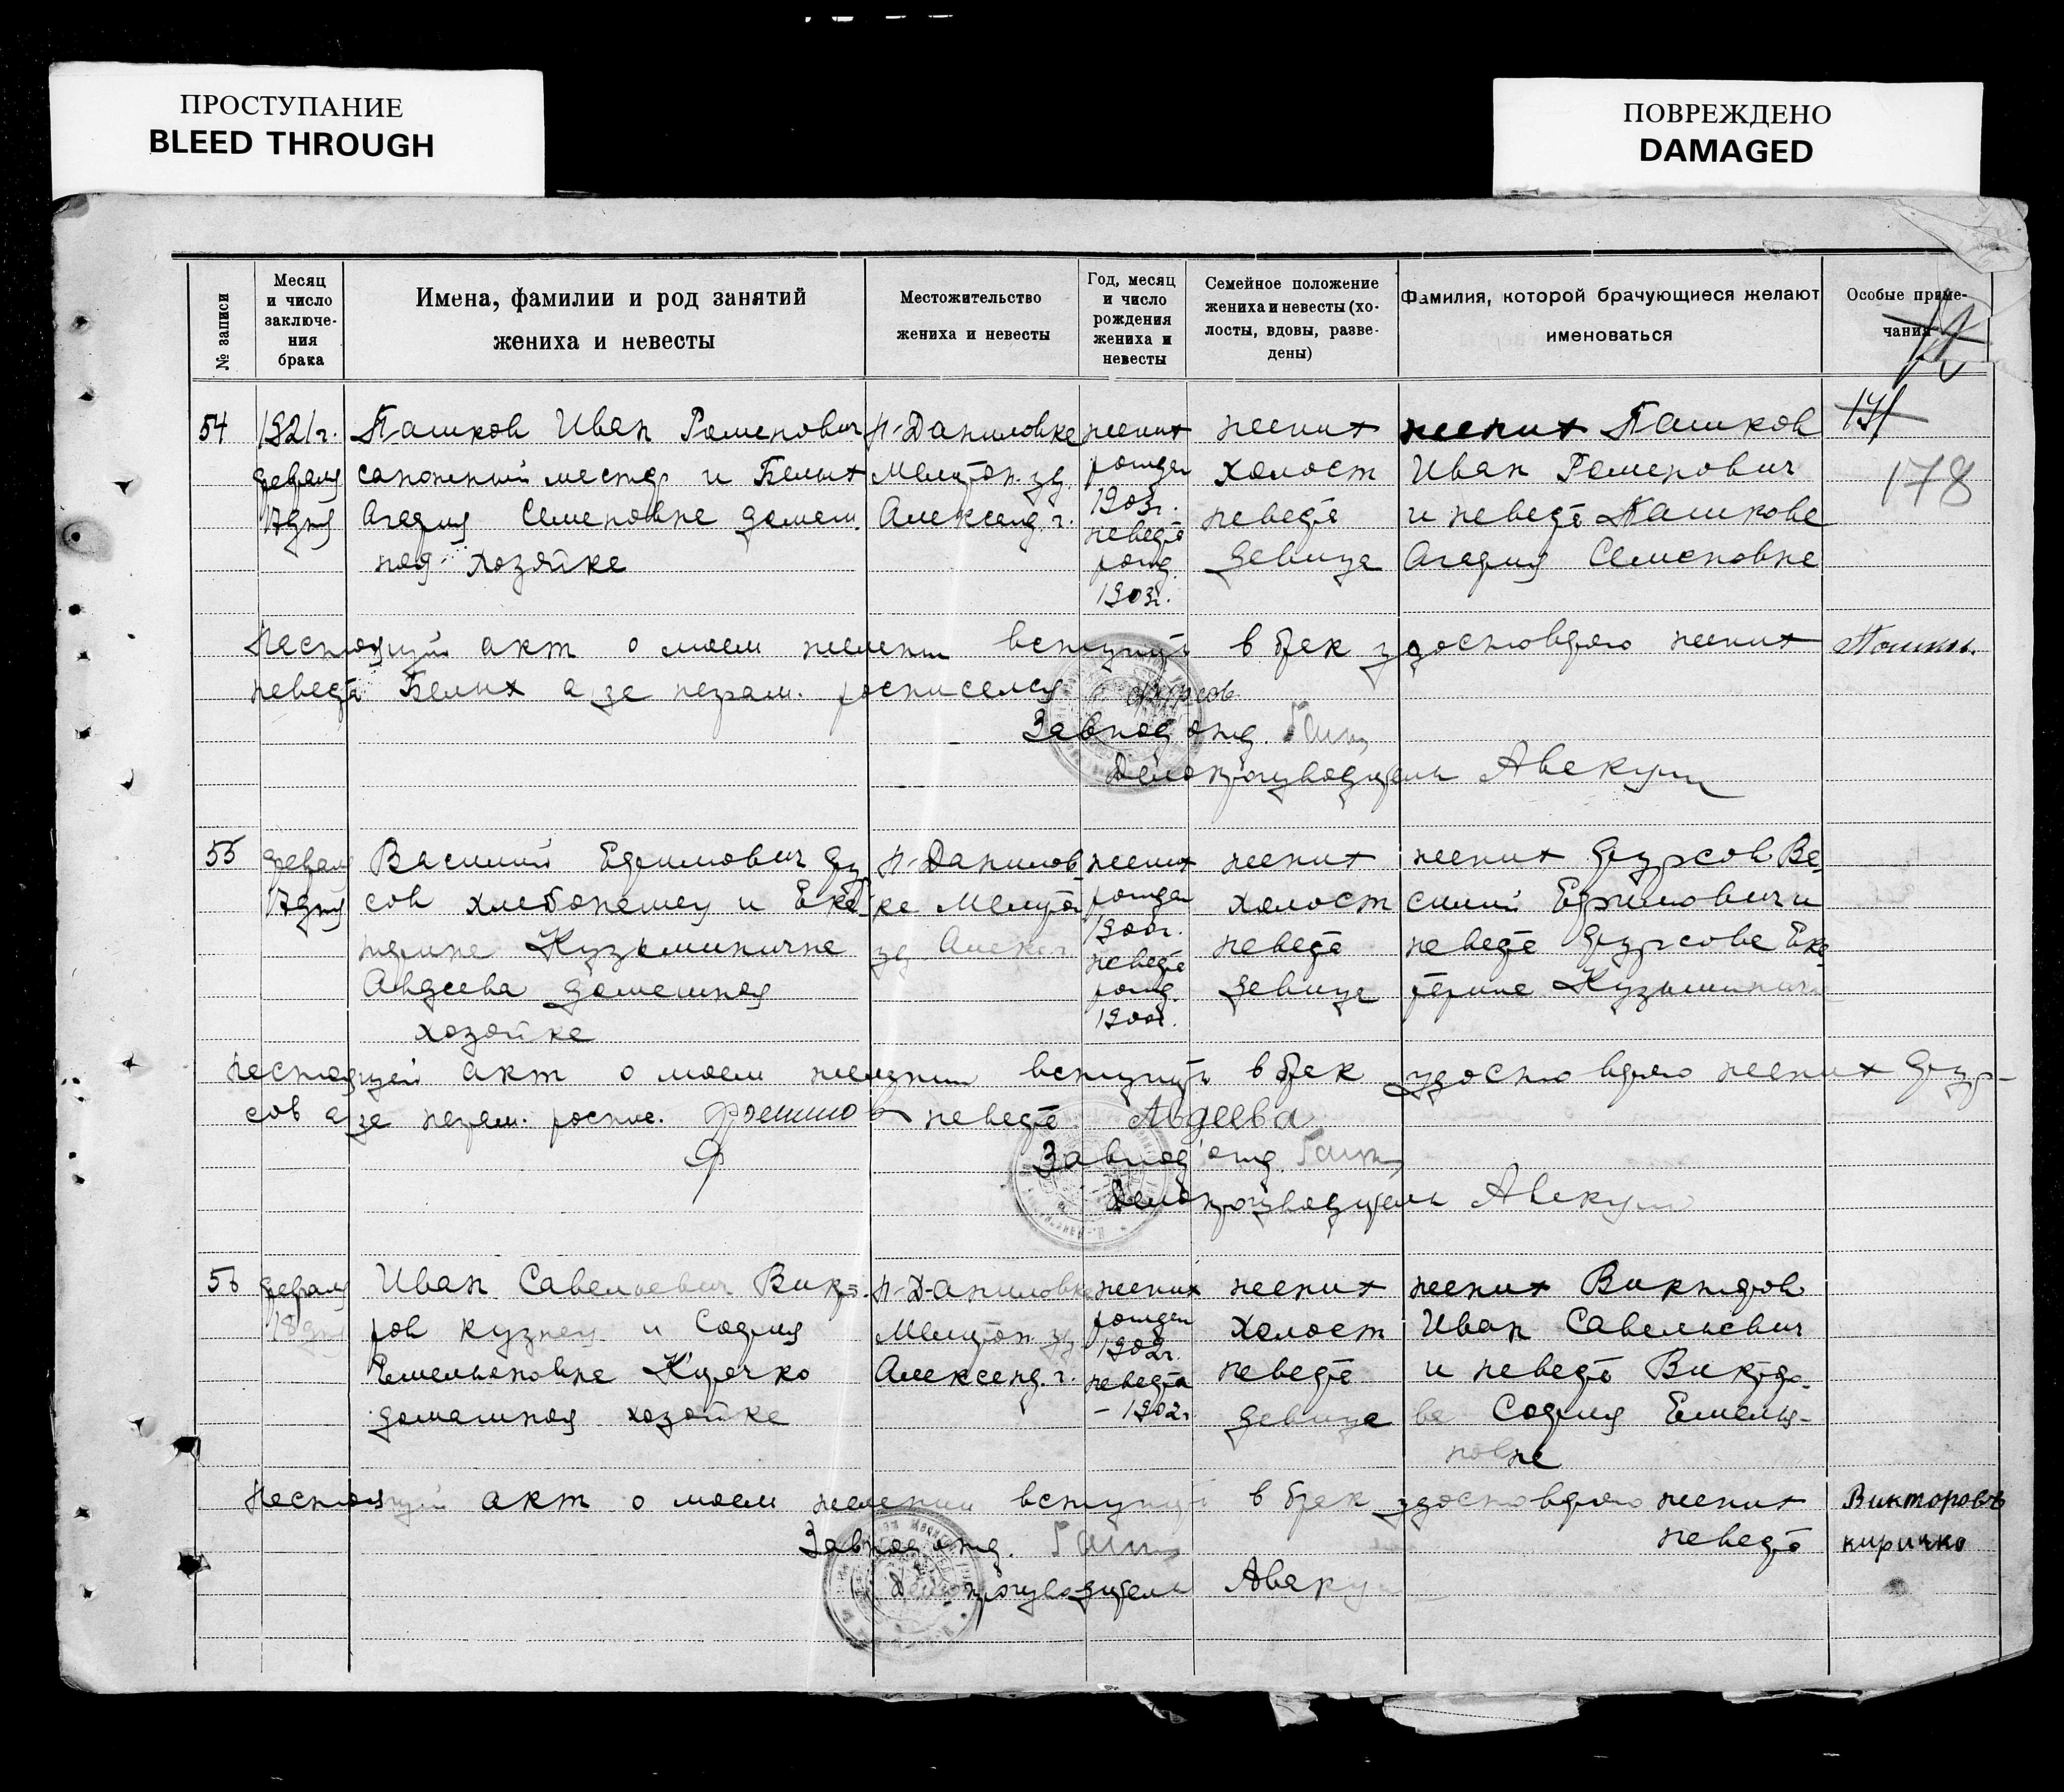 ПРОСТУПАНИЕ
BLEED THROUGH
ПОВРЕЖДЕНО
DAMAGED
№ записи
Месяц
и число
заключе-
ния
брака
Имена, фамилии и род занятий
жениха и невесты
Местожительство
жениха и невесты
Год, месяц
и число
рождения
жениха и
невесты
Семейное положение
жениха и невесты (хо-
лосты, вдовы, разве-
дены)
Фамилия, которой брачующиеся желают
именоваться
Особые приме-
чания
54
1921г.
февраля
17 дня
Пашков Иван
сапожный мастер и Белых
Агафия Семеновна домаш.
ная хозяйка
Н-Даниловка
Мелитоп. уу.
Александ. г.
жених
рожден
1903г.
невеста
рожд.
1903г.
жених
холост
невеста
девица
жених Пашков
Иван
и невеста Пашкова
Агафия Семеновна
171
178
Настоящий акт о моем желании вступить в брак удостоверяю жених
невеста Белых а за неграм. росписался Фурсов
Завподотд.
Делопроизводитель
55
февраля
17 дня
Василий Ефимович Фур
сов хлебопашец и Ека
терина Кузьминична
Авдеева домашная
хозяйка
Н-Данилов
ка Мелитоп
уу Алекс г.
жених
рожден
1900г.
невеста
рожд.
1900г.
жених
холост
невеста
девица
жених Фурсов Ва-
силий Ефимович и
невеста Фурсова Ека
терина Кузьминич
Настоящий акт о моем желании вступить в брак удостоверяю жених Фур-
сов а за неграм. роспис. невеста Авдеева
Завподотд.
Делопроизводитель
56
февраля
18 дня
Иван Савельевич Викто-
ров кузнец и София
Емельяновна Киричко
домашная хозяйка
Н-Даниловка
Мелитоп. уу.
Александ. г.
жених
рожден
1902г.
невеста
- 1902г.
жених
холост
невеста
девица
жених Викторов
Иван Савельевич
и невеста Викторо-
ва София Емелья-
новна
Настоящий акт о моем желании вступить в брак удостоверяю жених Викторовъ
Завподотд.
невеста киричко
Делопроизводитель